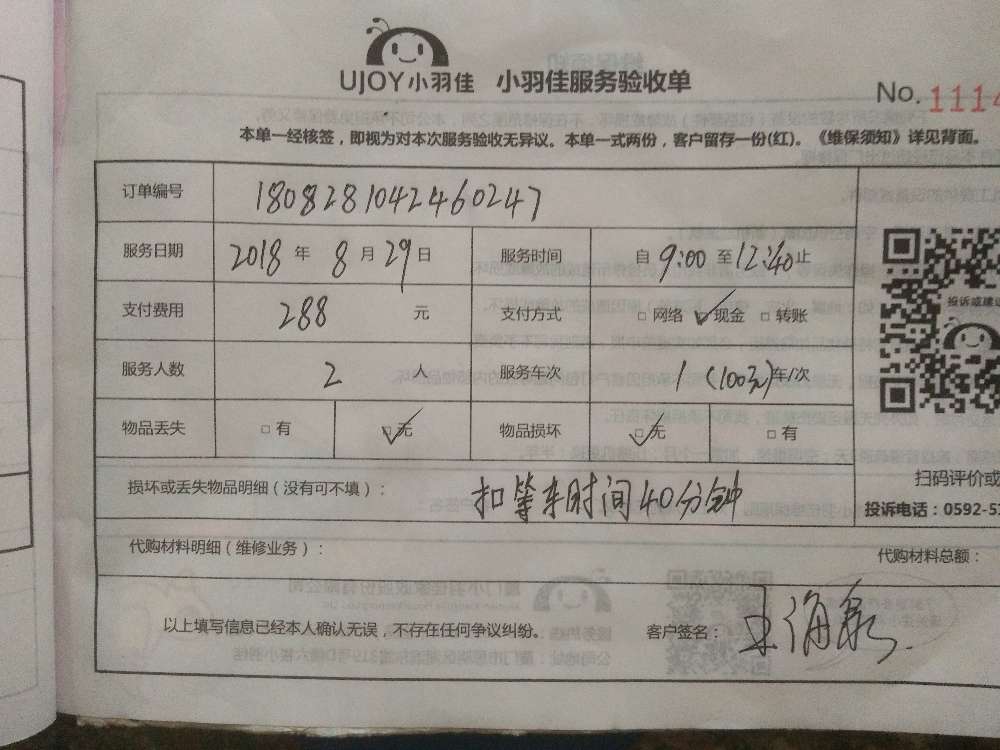 UJOY小羽佳 小羽佳服务验收单
No. 1114
本单一经核签，即视为对本次服务验收无异议。本单一式两份，客户留存一份(红)。《维保须知》详见背面。
订单编号 180828104246​0247
服务日期 2018 年 8 月 29 日 服务时间 自 9:00 至 12:40 止
支付费用 288 元 支付方式 □ 网络 ☑ 现金 □ 转账
服务人数 2 人 服务车次 1 (100元) 车/次
物品丢失 □ 有 ☑ 无 物品损坏 ☑ 无 □ 有
投诉或建议
扫码评价或
损坏或丢失物品明细（没有可不填）： 扣等车时间40分钟
投诉电话：0592-51
代购材料明细（维修业务）： 代购材料总额：
以上填写信息已经本人确认无误，不存在任何争议纠纷。 客户签名：